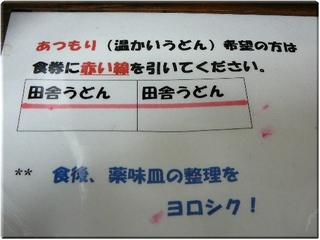 あつもり（温かいうどん）希望の方は
食券に赤い線を引いてください。
田舎うどん 田舎うどん
** 食後、薬味皿の整理を
ヨロシク！